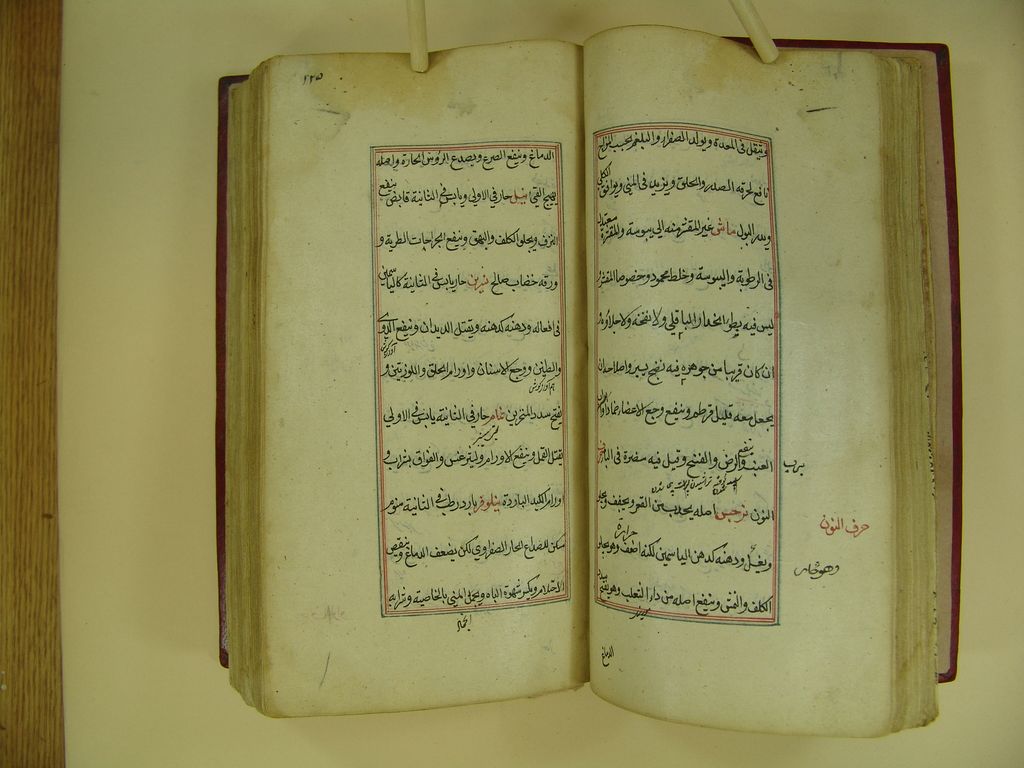 ويثقل في المعدة ويولد الصفراء والبلغم بحسب المزاج
نافع لحرقة الصدر والحلق ويزيد في المني ويوافق الكلى
ويدر البول ماش غير المقشر منه الى يبوسة والمقشر معتدل
في الرطوبة واليبوسة وخلطه محمود وخصوصا المقشر
ليس فيه بطوء انحدار الباقلي ولا نفخه ولا جلاؤه
ان كان قريبا من جوهره فيه نفخ يسير واصلاحه ان
يجعل معه قليل قرطم وينفع وجع الاعضاء ضمادا
العنب والرض والفسخ وقيل فيه مضرة في الباه
النون نرجس اصله يجذب من القعر ويجفف
حرف النون
ويغسل ودهنه كدهن الياسمين لكنه اضعف وهو يجلو
حرارة
وهو حار
الكلف والنمش وينفع اصله من داء الثعلب وهو يفتح
الدماغ
١٢٥
الدماغ وينفع الصرع ويصدع الرؤس الحارة واصله
يهيج القيء نيل حار في الاولى ويابس في الثانية قابض ينفع
النزف ويجلو الكلف والبهق وينفع الجراحات الطرية و
ورقه خضاب صالح نسرين حار يابس في الثانية كالياسمين
في افعاله ودهنه كدهنه ويقتل الديدان وينفع الدوي
والطنين ووجع الاسنان واورام الحلق واللوزتين و
يفتح سدد المنخرين نمام حار في الثانية يابس في الاولى
يقتل القمل وينفع الاورام وليثرغس والفواق بشراب و
اورام الكبد الباردة نيلوفر بارد رطب في الثانية منوم
مسكن للصداع الحار الصفراوي لكن يضعف الدماغ وينقص
الاحتلام ويكسر شهوة الباه ويجمد المني بالخاصية وشرابه